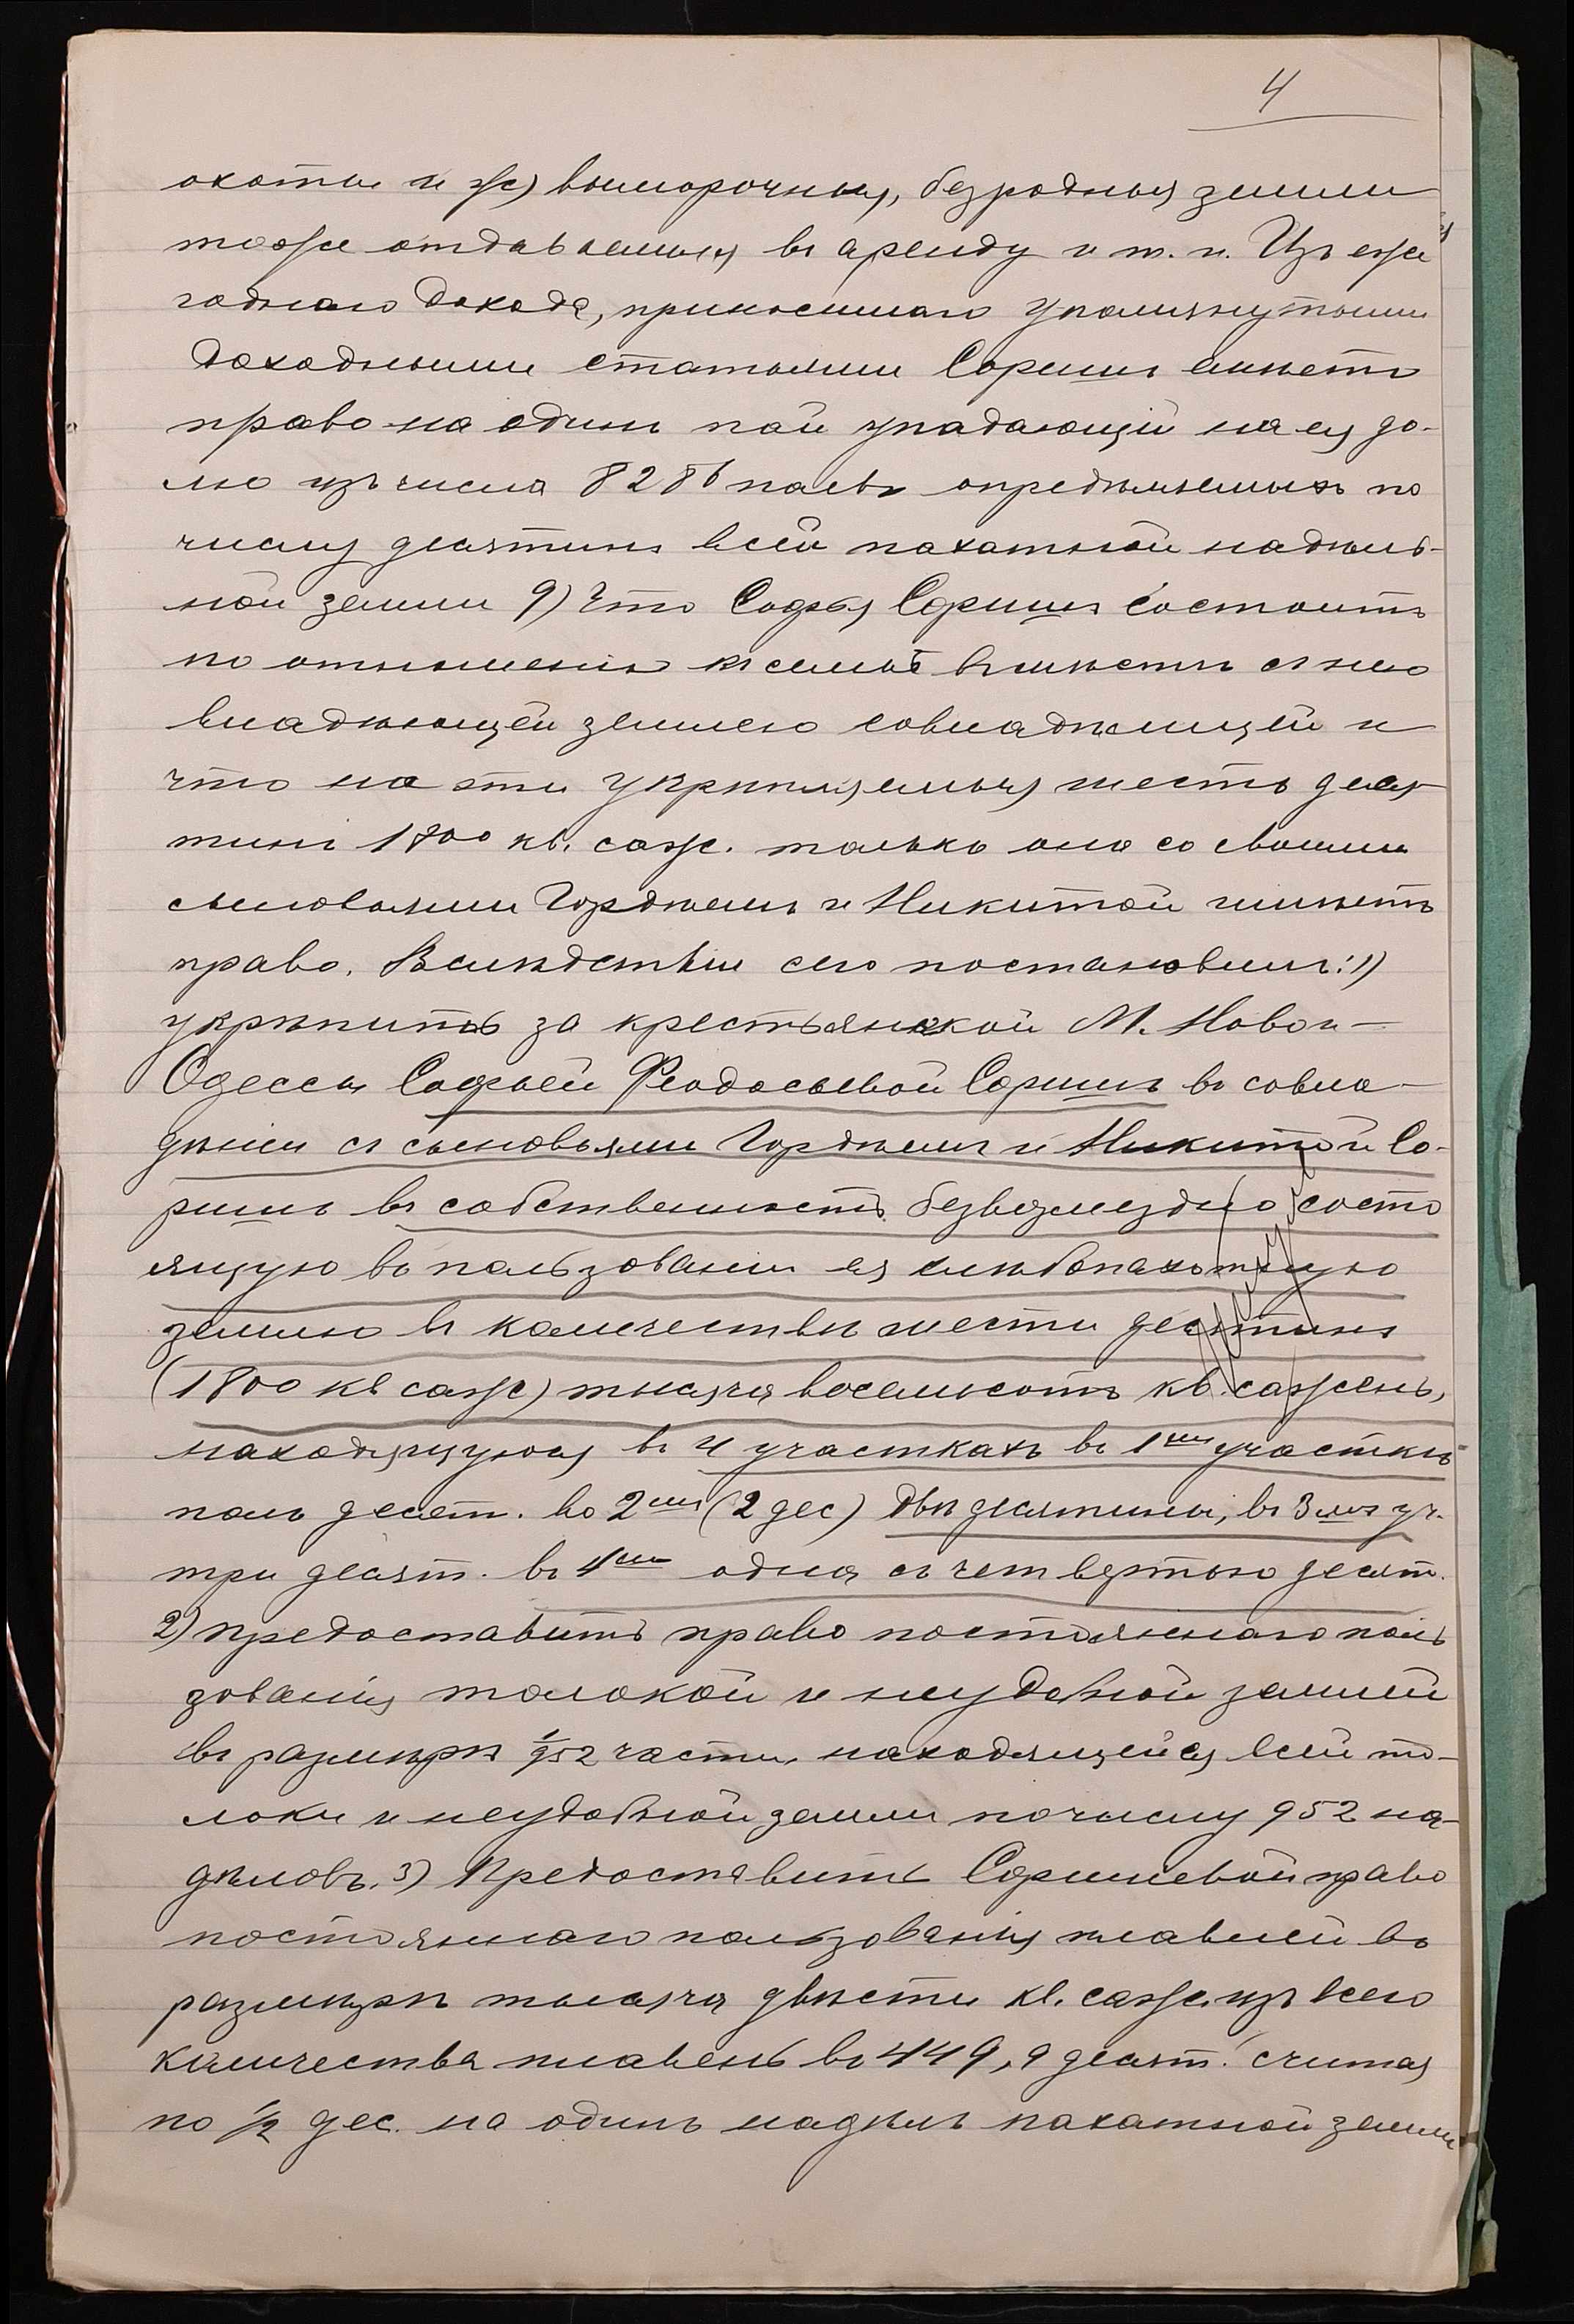 4
охоты и ж) выморочныя, безродныя земли
тоже отдаваемыя въ аренду и т. п. Изъ еже
годнаго дохода, приносимаго упомянутыми
доходными статьями Соришъ имѣетъ
право на одинъ пай упадающій на ея до-
лю изъ числа 8286 паевъ опредѣляемыхъ по
числу десятинъ всей пахатной надѣль-
ной земли 9) Что Софья Соришъ состоитъ
по отношенію къ семьѣ вмѣстѣ съ нею
владѣющей землею совладѣлицей и
что на эти укрѣпляемыя шесть деся-
тинъ 1800 кв. саж. только она со своими
сыновьями Гордѣемъ и Никитой имѣетъ
право. Вслѣдствіи сего постановилъ: 1)
укрѣпить за крестьянкой М. Новой-
Одессы Софьей Феодосьевой Соришъ въ совла-
дѣніи съ сыновьями Гордѣемъ и Никитой Со-
ришъ въ собственность безвозмездно состо
ящую въ пользованіи ея хлѣбопахотную
землю въ количествѣ шести десятинъ
(1800 кв саж) тысяча восемьсотъ кв. сажень,
находящуюся въ 4 участкахъ въ 1мъ участкѣ
полъ десят. во 2мъ (2 дес) двѣ десятины, въ 3мъ уч.
три десят. въ 4мъ одна съ четвертью десят.
2) предоставить право постояннаго поль
зованія толокой и неудобной землей
въ размѣрѣ 1/952 части, находящейся всей то-
локи и неудобной земли по числу 952 на-
дѣловъ. 3) Предоставить Соришевой право
постояннаго пользованія плавней въ
размѣрѣ тысяча двѣсти кв. саж. изъ всего
количества плавень въ 449,9 десят. считая
по 1/2 дес. на одинъ надѣлъ пахатной земли